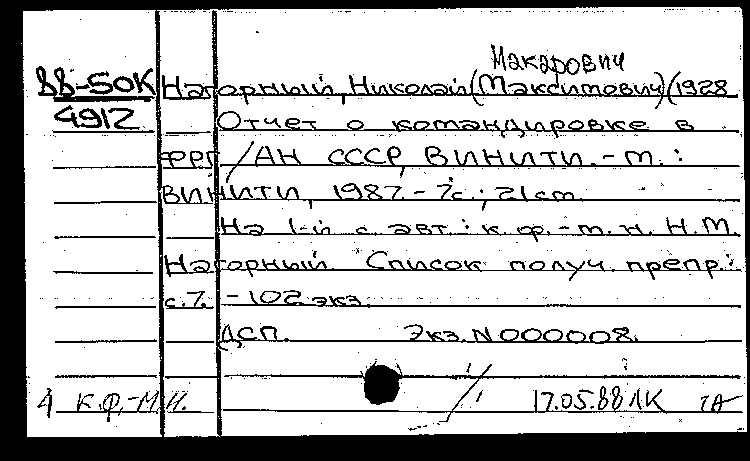 Макарович
88-50К Нагорный, Николай (Максимович) (1928
4912 Отчет о командировке в
ФРГ / АН СССР, ВИНИТИ. - М. :
ВИНИТИ, 1987. - 7 с. ; 21 см.
На 1-й с. авт. : к. ф. - м. н. Н. М.
Нагорный. Список получ. препр. :
с. 7. - 102 экз.
ДСП. Экз. N 000008.
К.Ф.-М.Н. 17.05.88 ЛК